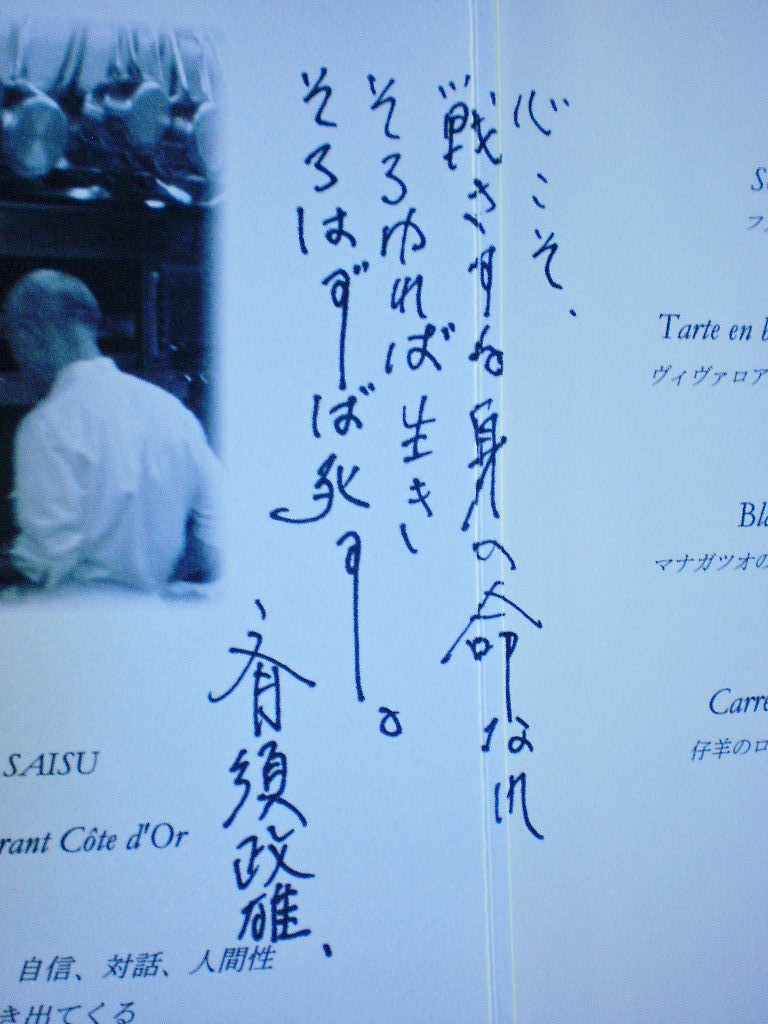 心こそ、
戦さする身の命なれ
そろゆれば生き
そろはずば死す。
斉須政雄、
SAISU
rant Côte d'Or
自信、対話、人間性
き出てくる
Tarte en
ヴィヴァロア
マナガツオの
Carré
仔羊のロ